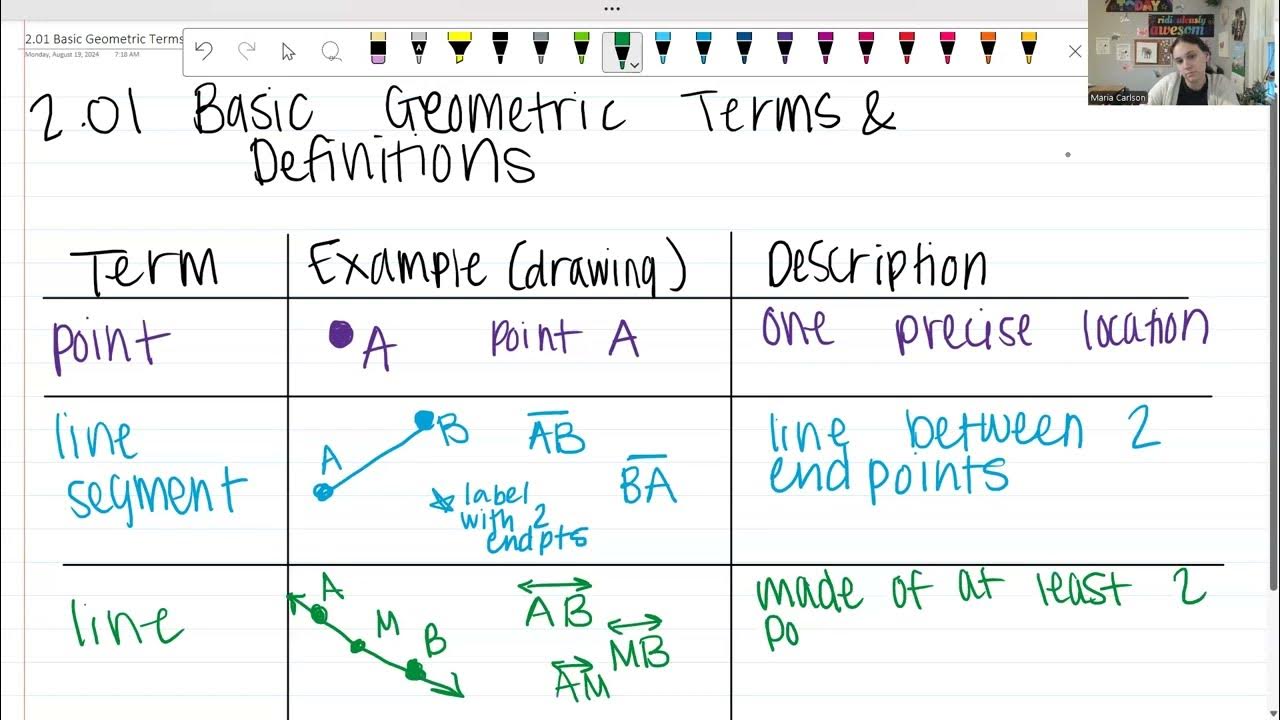 2.01 Basic Geometric Terms
Monday, August 19, 2024 7:18 AM
TODAY
ridiculously
awesome
Maria Carlson
2.01 Basic Geometric Terms &
Definitions
Term Example (drawing) Description
point A point A one precise location
line segment
A B
AB
BA
label
with 2
endpts
line between 2
endpoints
line
A M B
AB
MB
AM
made of at least 2
po